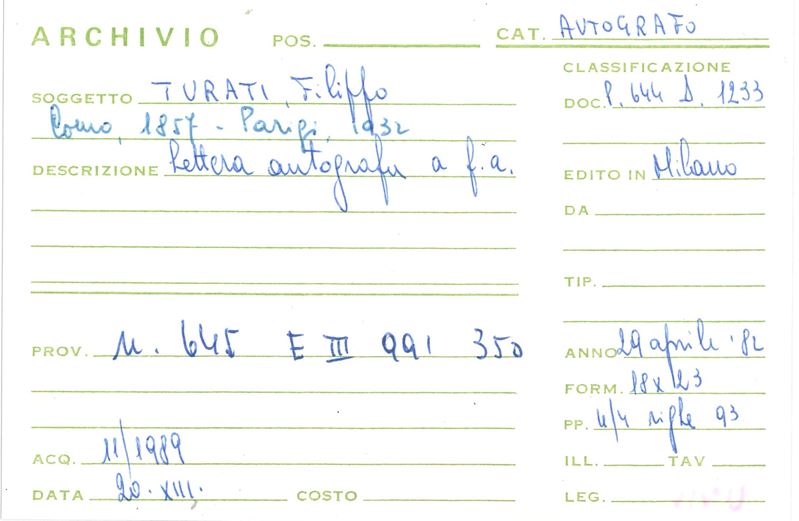 ARCHIVIO POS. CAT. AUTOGRAFO
SOGGETTO TURATI, Filippo
Como, 1857 - Parigi, 1932
DESCRIZIONE Lettera autografa a f.a.
CLASSIFICAZIONE
DOC. P. 644 D. 1233
EDITO IN Milano
DA
TIP.
PROV. N. 645 E III 991 350
ANNO 29 aprile '82
FORM. 18x23
PP. 4/4 righe 93
ACQ. 11/1989
ILL. TAV
DATA 20. XIII. COSTO
LEG.